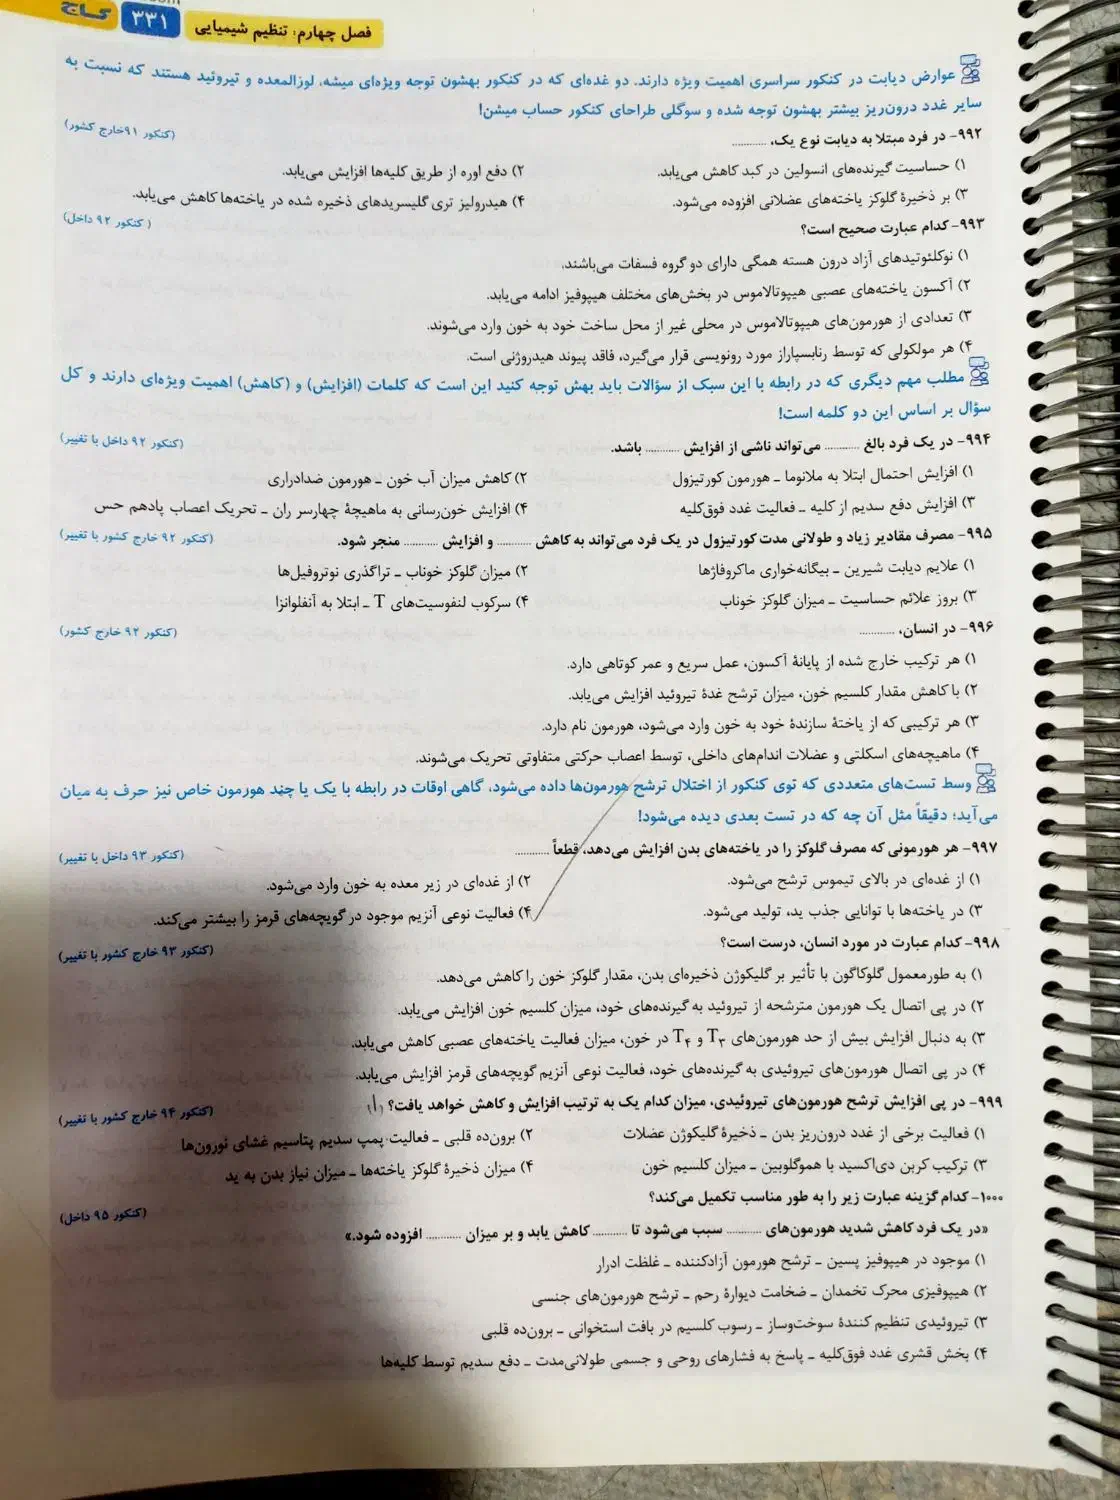 گاج ۳۳۱ فصل چهارم: تنظیم شیمیایی
عوارض دیابت در کنکور سراسری اهمیت ویژه دارند. دو غده‌ای که در کنکور بهشون توجه ویژه‌ای میشه، لوزالمعده و تیروئید هستند که نسبت به
سایر غدد درون‌ریز بیشتر بهشون توجه شده و سوگلی طراحای کنکور حساب میشن!
۹۹۲- در فرد مبتلا به دیابت نوع یک، ............ (کنکور ۹۱ خارج کشور)
۱) حساسیت گیرنده‌های انسولین در کبد کاهش می‌یابد. ۲) دفع اوره از طریق کلیه‌ها افزایش می‌یابد.
۳) بر ذخیرۀ گلوکز یاخته‌های عضلانی افزوده می‌شود. ۴) هیدرولیز تری گلیسریدهای ذخیره شده در یاخته‌ها کاهش می‌یابد.
۹۹۳- کدام عبارت صحیح است؟ (کنکور ۹۲ داخل)
۱) نوکلئوتیدهای آزاد درون هسته همگی دارای دو گروه فسفات می‌باشند.
۲) آکسون یاخته‌های عصبی هیپوتالاموس در بخش‌های مختلف هیپوفیز ادامه می‌یابد.
۳) تعدادی از هورمون‌های هیپوتالاموس در محلی غیر از محل ساخت خود به خون وارد می‌شوند.
۴) هر مولکولی که توسط رنابسپاراز مورد رونویسی قرار می‌گیرد، فاقد پیوند هیدروژنی است.
مطلب مهم دیگری که در رابطه با این سبک از سؤالات باید بهش توجه کنید این است که کلمات (افزایش) و (کاهش) اهمیت ویژه‌ای دارند و کل
سؤال بر اساس این دو کلمه است!
۹۹۴- در یک فرد بالغ ............ می‌تواند ناشی از افزایش ............ باشد. (کنکور ۹۲ داخل با تغییر)
۱) افزایش احتمال ابتلا به ملانوما - هورمون کورتیزول ۲) کاهش میزان آب خون - هورمون ضدادراری
۳) افزایش دفع سدیم از کلیه - فعالیت غدد فوق‌کلیه ۴) افزایش خون‌رسانی به ماهیچۀ چهارسر ران - تحریک اعصاب پادهم حس
۹۹۵- مصرف مقادیر زیاد و طولانی مدت کورتیزول در یک فرد می‌تواند به کاهش ............ و افزایش ............ منجر شود. (کنکور ۹۲ خارج کشور با تغییر)
۱) علایم دیابت شیرین - بیگانه‌خواری ماکروفاژها ۲) میزان گلوکز خوناب - تراگذری نوتروفیل‌ها
۳) بروز علائم حساسیت - میزان گلوکز خوناب ۴) سرکوب لنفوسیت‌های T - ابتلا به آنفلوانزا
۹۹۶- در انسان، ............ (کنکور ۹۲ خارج کشور)
۱) هر ترکیب خارج شده از پایانۀ آکسون، عمل سریع و عمر کوتاهی دارد.
۲) با کاهش مقدار کلسیم خون، میزان ترشح غدۀ تیروئید افزایش می‌یابد.
۳) هر ترکیبی که از یاختۀ سازندۀ خود به خون وارد می‌شود، هورمون نام دارد.
۴) ماهیچه‌های اسکلتی و عضلات اندام‌های داخلی، توسط اعصاب حرکتی متفاوتی تحریک می‌شوند.
وسط تست‌های متعددی که توی کنکور از اختلال ترشح هورمون‌ها داده می‌شود، گاهی اوقات در رابطه با یک یا چند هورمون خاص نیز حرف به میان
می‌آید؛ دقیقاً مثل آن چه که در تست بعدی دیده می‌شود!
۹۹۷- هر هورمونی که مصرف گلوکز را در یاخته‌های بدن افزایش می‌دهد، قطعاً ............ (کنکور ۹۳ داخل با تغییر)
۱) از غده‌ای در بالای تیموس ترشح می‌شود. ۲) از غده‌ای در زیر معده به خون وارد می‌شود.
۳) در یاخته‌ها با توانایی جذب ید، تولید می‌شود. ۴) فعالیت نوعی آنزیم موجود در گویچه‌های قرمز را بیشتر می‌کند.
۹۹۸- کدام عبارت در مورد انسان، درست است؟ (کنکور ۹۳ خارج کشور با تغییر)
۱) به طورمعمول گلوکاگون با تأثیر بر گلیکوژن ذخیره‌ای بدن، مقدار گلوکز خون را کاهش می‌دهد.
۲) در پی اتصال یک هورمون مترشحه از تیروئید به گیرنده‌های خود، میزان کلسیم خون افزایش می‌یابد.
۳) به دنبال افزایش بیش از حد هورمون‌های T۳ و T۴ در خون، میزان فعالیت یاخته‌های عصبی کاهش می‌یابد.
۴) در پی اتصال هورمون‌های تیروئیدی به گیرنده‌های خود، فعالیت نوعی آنزیم گویچه‌های قرمز افزایش می‌یابد.
۹۹۹- در پی افزایش ترشح هورمون‌های تیروئیدی، میزان کدام یک به ترتیب افزایش و کاهش خواهد یافت؟ (کنکور ۹۴ خارج کشور با تغییر)
۱) فعالیت برخی از غدد درون‌ریز بدن - ذخیرۀ گلیکوژن عضلات ۲) برون‌ده قلبی - فعالیت پمپ سدیم پتاسیم غشای نورون‌ها
۳) ترکیب کربن دی‌اکسید با هموگلوبین - میزان کلسیم خون ۴) میزان ذخیرۀ گلوکز یاخته‌ها - میزان نیاز بدن به ید
۱۰۰۰- کدام گزینه عبارت زیر را به طور مناسب تکمیل می‌کند؟ (کنکور ۹۵ داخل)
«در یک فرد کاهش شدید هورمون‌های ............ سبب می‌شود تا ............ کاهش یابد و بر میزان ............ افزوده شود.»
۱) موجود در هیپوفیز پسین - ترشح هورمون آزادکننده - غلظت ادرار
۲) هیپوفیزی محرک تخمدان - ضخامت دیوارۀ رحم - ترشح هورمون‌های جنسی
۳) تیروئیدی تنظیم کنندۀ سوخت‌وساز - رسوب کلسیم در بافت استخوانی - برون‌ده قلبی
۴) بخش قشری غدد فوق‌کلیه - پاسخ به فشارهای روحی و جسمی طولانی‌مدت - دفع سدیم توسط کلیه‌ها